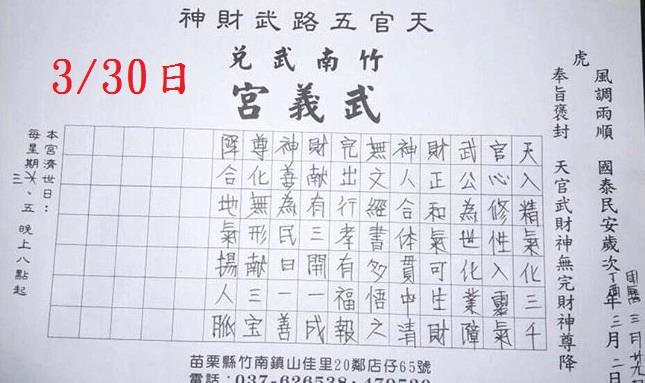 天官五路武財神
竹南武兌
武義宮
3/30日
風調雨順 國泰民安歲次丁酉年三月二日
虎
奉旨褒封 天官武財神無完財神尊降
天入精氣化三千
官心修性入靈氣
武公為世化業障
財正和氣可生財
神人合体貫中清
無文經書多悟之
完出行孝有福報
財獻有三開一成
神善為民日一善
尊化無形獻三宝
降合地氣揚人脈
本宮濟世日：
每星期三、五 晚上八點起
苗栗縣竹南鎮山佳里20鄰店仔65號
電話：037-626538